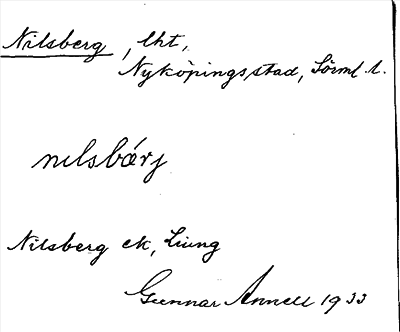 Nilsberg, lht,
Nyköpings stad, Sörml. l.
nılsbærj
Nilsberg ek, Liung
Gunnar Annell 1933